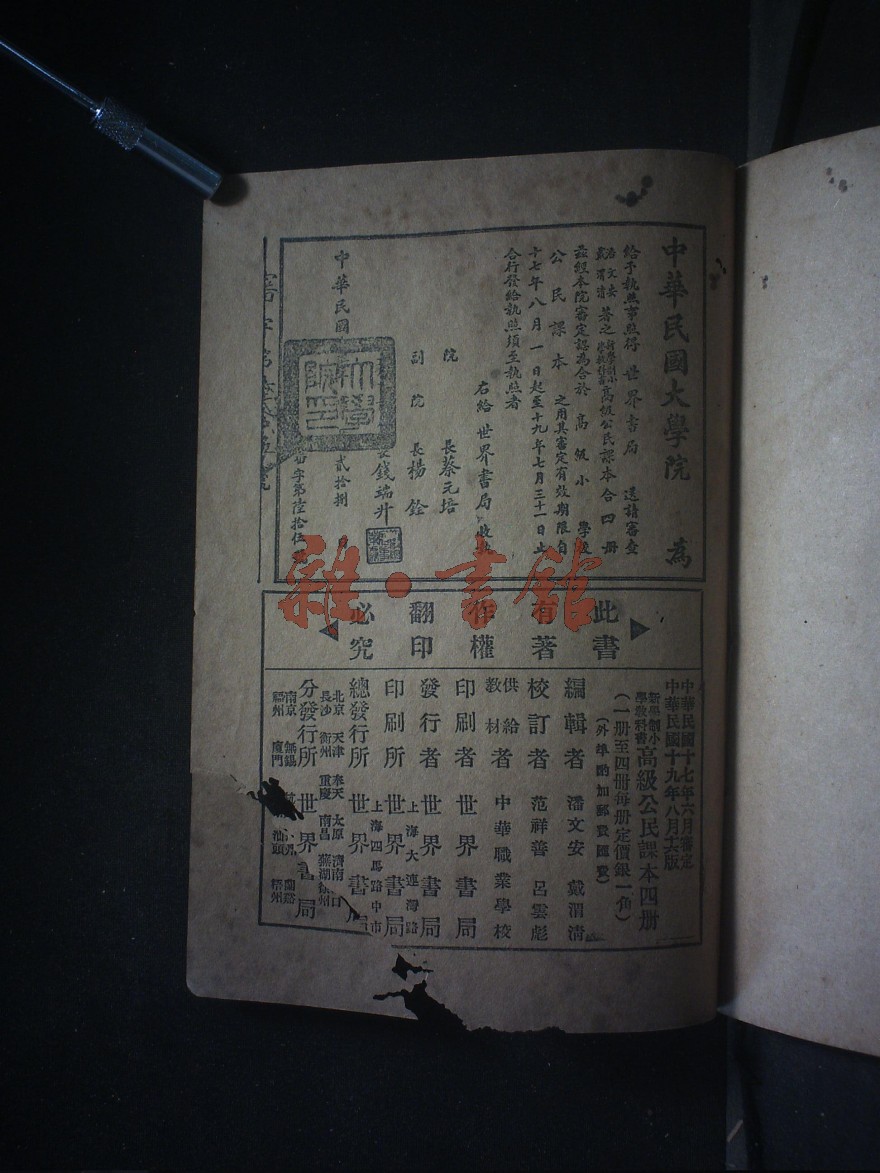 中華民國大學院 為
給予執照事照得 世界書局 送請審查
潘文安
戴渭清 著之 新學制小學教科書 高級公民課本合四冊
茲經本院審定認為合於 高級小 學校
公民課本 之用其審定有效期限自
十七年八月一日起至十九年七月三十一日止
合行發給執照須至執照者
右給世界書局收執
院 長蔡元培
副院 長楊 銓
長錢端升
大學院印
中華民國
貳拾捌 日
字第陸拾伍號
此書有著作權翻印必究
中華民國十七年六月審定
中華民國十九年八月 版
新學制小學教科書 高級公民課本四冊
(一冊至四冊每冊定價銀一角)
(外埠酌加郵費匯費)
編輯者 潘文安 戴渭清
校訂者 范祥善 呂雲彪
供給教材者 中華職業學校
印刷者 世界書局
發行者 世界書局
印刷所 上海大連灣路 世界書局
總發行所 上海四馬路中市 世界書局
北京 天津 奉天 太原 濟南 口
長沙 衡州 重慶 南昌 蕪湖 徐州
分發行所 世界書局
南京 無錫 蘭谿
福州 廈門 汕頭 梧州
雜·書館